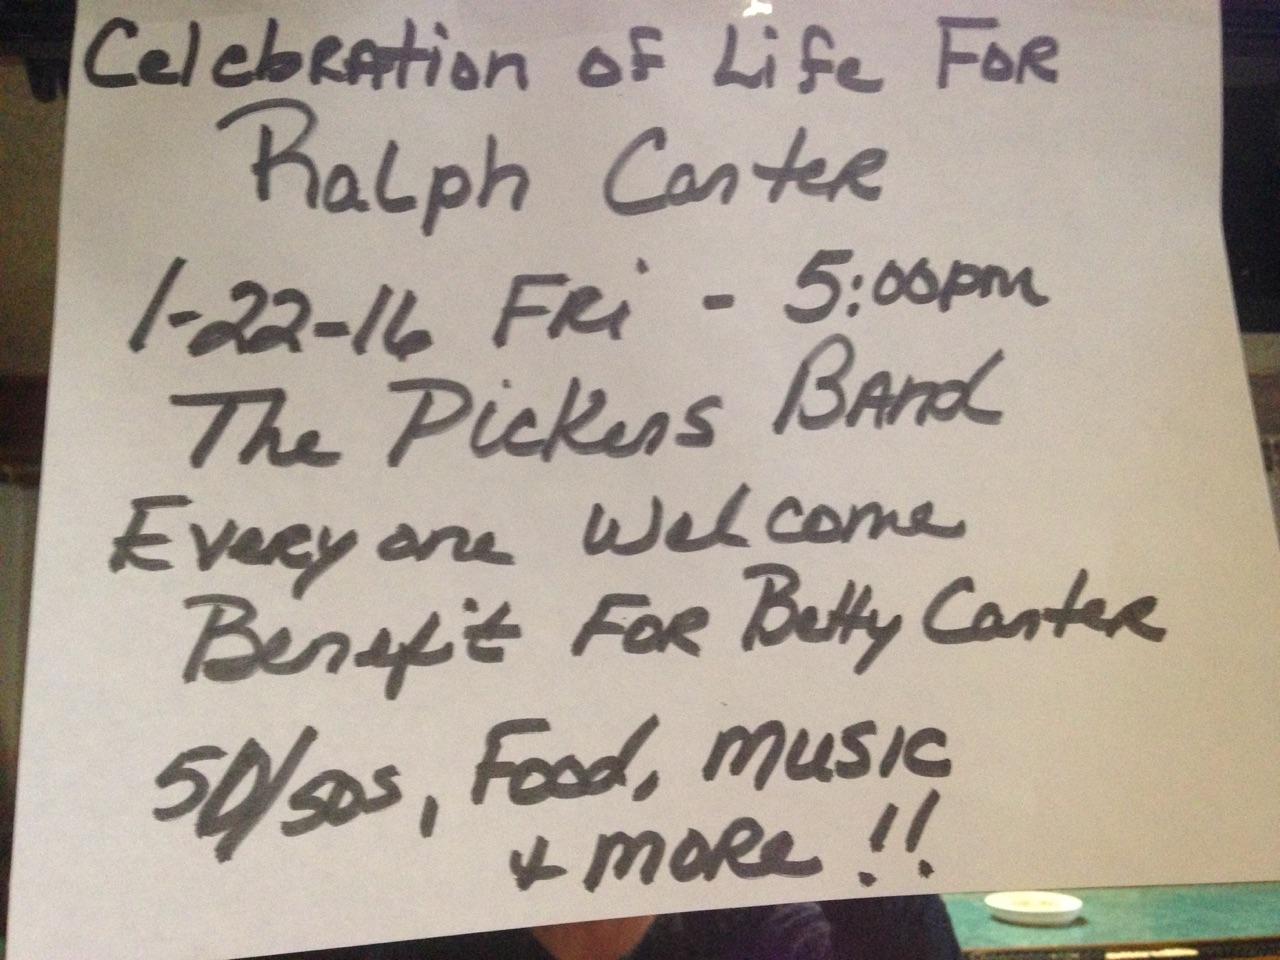 Celebration of Life For
Ralph Carter
1-22-16 Fri - 5:00pm
The Pickers Band
Everyone Welcome
Benefit For Betty Carter
50/50s, Food, music
+ more!!